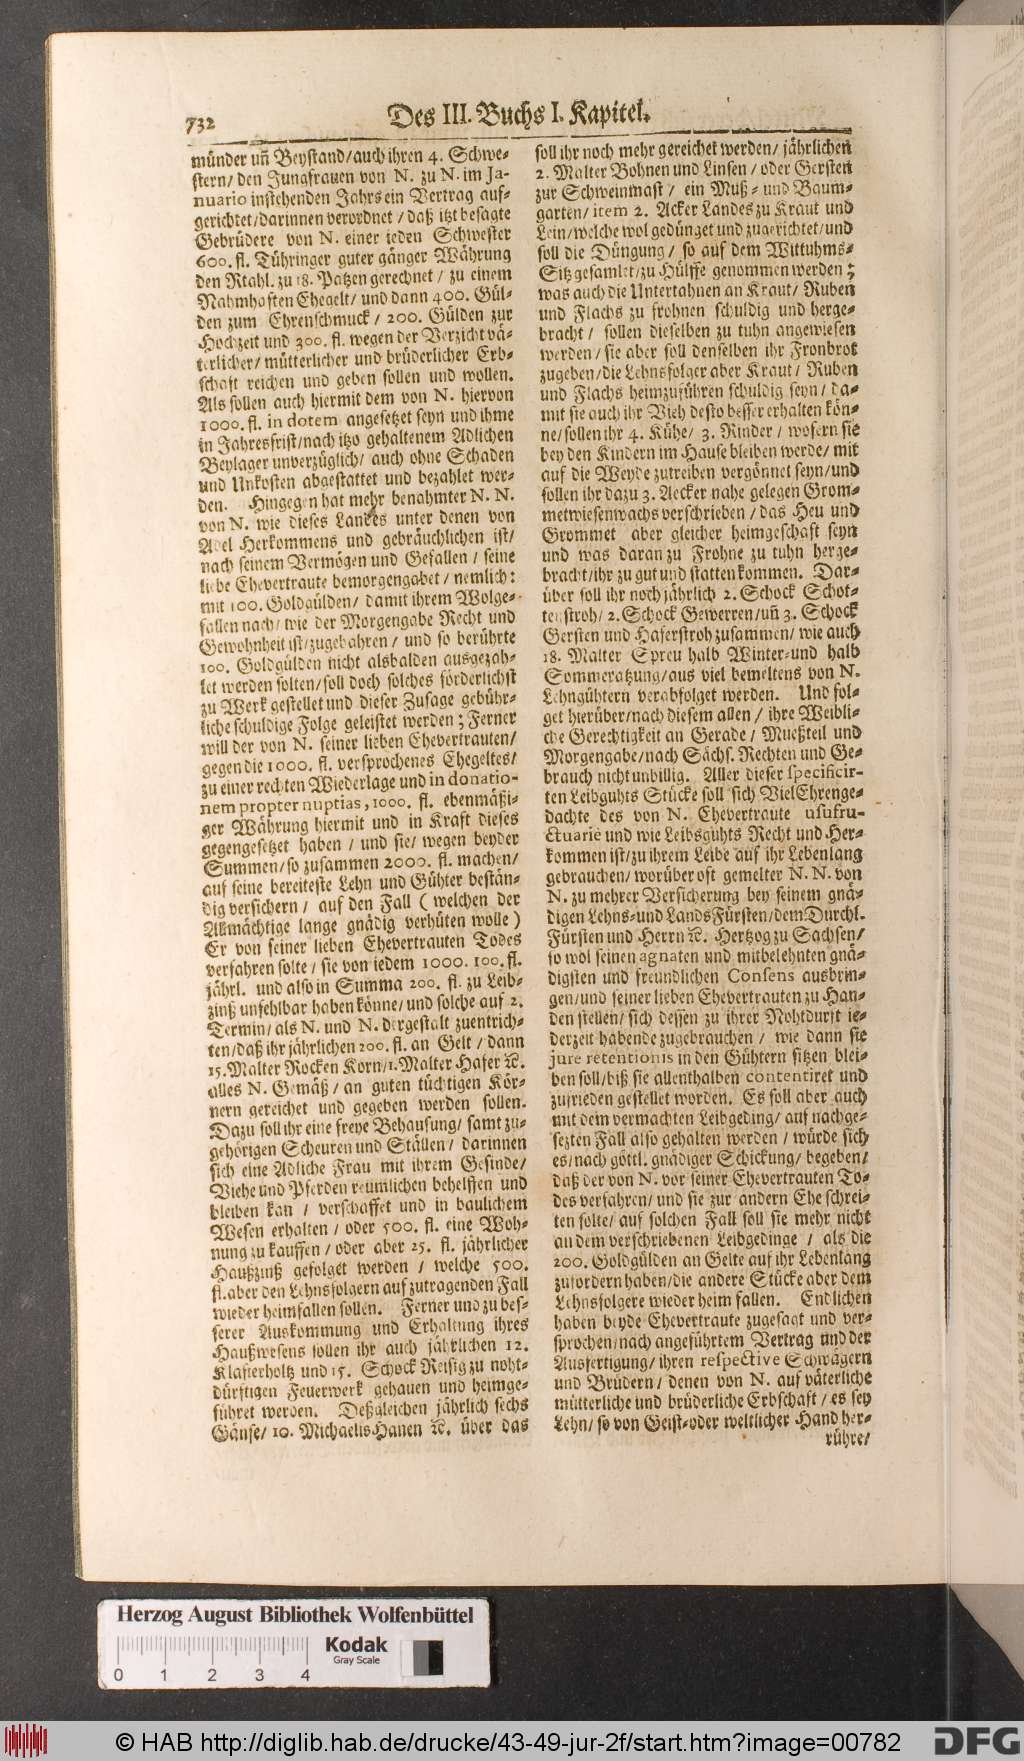 732
Des III. Buchs I. Kapitel.
münder uñ Beystand/auch ihren 4. Schwe-
stern/ den Jungfrauen von N. zu N. im Ja-
nuario instehenden Jahrs ein Vertrag auf-
gerichtet/darinnen verordnet / daß itzt besagte
Gebrüdere von N. einer ieden Schwester
600. fl. Tühringer guter gänger Währung
den Rtahl. zu 18. Patzen gerechnet / zu einem
Nahmhaften Ehegelt/ und dann 400. Gül-
den zum Ehrenschmuck / 200. Gülden zur
Hochzeit und 300. fl. wegen der Verzicht vä-
terlicher/ mütterlicher und brüderlicher Erb-
schaft reichen und geben sollen und wollen.
Als sollen auch hiermit dem von N. hiervon
1000. fl. in dotem angesetzet seyn und ihme
in Jahresfrist/nach itzo gehaltenem Adlichen
Beylager unverzüglich/ auch ohne Schaden
und Unkosten abgestattet und bezahlet wer-
den. Hingegen hat mehr benahmter N. N.
von N. wie dieses Landes unter denen von
Adel Herkommens und gebräuchlichen ist/
nach seinem Vermögen und Gefallen / seine
liebe Ehevertraute bemorgengabet / nemlich:
mit 100. Goldgülden/ damit ihrem Wolge-
fallen nach/ wie der Morgengabe Recht und
Gewohnheit ist/zugebahren / und so berührte
100. Goldgülden nicht alsbalden ausgezah-
let werden solten/soll doch solches förderlichst
zu Werk gestellet und dieser Zusage gebühr-
liche schuldige Folge geleistet werden; Ferner
will der von N. seiner lieben Ehevertrauten/
gegen die 1000. fl. versprochenes Ehegeltes/
zu einer rechten Wiederlage und in donatio-
nem propter nuptias, 1000. fl. ebenmäßi-
ger Währung hiermit und in Kraft dieses
gegengesetzet haben / und sie/ wegen beyder
Summen/ so zusammen 2000. fl. machen/
auf seine bereiteste Lehn und Gühter bestän-
dig versichern / auf den Fall ( welchen der
Allmächtige lange gnädig verhüten wolle )
Er von seiner lieben Ehevertrauten Todes
verfahren solte / sie von iedem 1000. 100. fl.
jährl. und also in Summa 200. fl. zu Leib-
zinß unfehlbar haben könne/ und solche auf 2.
Termin/ als N. und N. dergestalt zuentrich-
ten/daß ihr jährlichen 200. fl. an Gelt / dann
15. Malter Rocken Korn/1. Malter Hafer ꝛc.
alles N. Gemäß/ an guten tüchtigen Kör-
nern gereichet und gegeben werden sollen.
Dazu soll ihr eine freye Behausung/ samt zu-
gehörigen Scheuren und Ställen/ darinnen
sich eine Adliche Frau mit ihrem Gesinde/
Viehe und Pferden reumlichen behelffen und
bleiben kan / verschaffet und in baulichem
Wesen erhalten / oder 500. fl. eine Woh-
nung zu kauffen / oder aber 25. fl. jährlicher
Haußzinß gefolget werden / welche 500.
fl. aber den Lehnsfolgern auf zutragenden Fall
wieder heimfallen sollen. Ferner und zu bes-
serer Auskommung und Erhaltung ihres
Haußwesens sollen ihr auch jährlichen 12.
Klafterholtz und 15. Schock Reisig zu noht-
dürftigen Feuerwerk gehauen und heimge-
führet werden. Deßgleichen jährlich sechs
Gänse/ 10. MichaelisHanen ꝛc. über das
soll ihr noch mehr gereichet werden/ jährlichen
2. Malter Bohnen und Linsen / oder Gersten
zur Schweinmast / ein Muß- und Baum-
garten/ item 2. Acker Landes zu Kraut und
Lein/welche wol gedünget und zugerichtet/und
soll die Düngung / so auf dem Wittuhms-
Sitz gesamlet/zu Hülffe genommen werden;
was auch die Untertahnen an Kraut/ Ruben
und Flachs zu frohnen schuldig und herge-
bracht / sollen dieselben zu tuhn angewiesen
werden / sie aber soll denselben ihr Fronbrot
zugeben/die Lehnsfolger aber Kraut/ Ruben
und Flachs heimzuführen schuldig seyn / da-
mit sie auch ihr Vieh desto besser erhalten kön-
ne/sollen ihr 4. Kühe/ 3. Rinder / wofern sie
bey den Kindern im Hause bleiben werde/ mit
auf die Weyde zutreiben vergönnet seyn/und
sollen ihr dazu 3. Aecker nahe gelegen Grom-
metwiesenwachs verschrieben / das Heu und
Grommet aber gleicher heimgeschaft seyn
und was daran zu Frohne zu tuhn herge-
bracht/ihr zu gut und statten kommen. Dar-
über soll ihr noch jährlich 2. Schock Schot-
tenstroh/ 2. Schock Gewerren/uñ 3. Schock
Gersten und Haferstroh zusammen/ wie auch
18. Malter Spreu halb Winter-und halb
Sommeratzung/aus viel bemeltens von N.
Lehngühtern verabfolget werden. Und fol-
get hierüber/nach diesem allen / ihre Weibli-
che Gerechtigkeit an Gerade / Mueßteil und
Morgengabe/nach Sächs. Rechten und Ge-
brauch nicht unbillig. Aller dieser specificir-
ten Leibguhts Stücke soll sich VielEhrenge-
dachte des von N. Ehevertraute usufru-
ctuarie und wie Leibsguhts Recht und Her-
kommen ist/zu ihrem Leibe auf ihr Lebenlang
gebrauchen/ worüber oft gemelter N. N. von
N. zu mehrer Versicherung bey seinem gnä-
digen Lehns-und LandsFürsten/dem Durchl.
Fürsten und Herrn ꝛc. Hertzog zu Sachsen/
so wol seinen agnaten und mitbelehnten gnä-
digsten und freundlichen Consens ausbrin-
gen/und seiner lieben Ehevertrauten zu Han-
den stellen/ sich dessen zu ihrer Nohtdurst ie-
derzeit habende zugebrauchen / wie dann sie
jure retentionis in den Gühtern sitzen blei-
ben soll/biß sie allenthalben contentiret und
zufrieden gestellet worden. Es soll aber auch
mit dem vermachten Leibgeding/ auf nachge-
sezten Fall also gehalten werden / würde sich
es/nach göttl. gnädiger Schickung/ begeben/
daß der von N. vor seiner Ehevertrauten To-
des verfahren/ und sie zur andern Ehe schrei-
ten solte/ auf solchen Fall soll sie mehr nicht
an dem verschriebenen Leibgedinge / als die
200. Goldgülden an Gelte auf ihr Lebenlang
zufordern haben/die andere Stücke aber dem
Lehnsfolgere wieder heim fallen. Endlichen
haben beyde Ehevertraute zugesagt und ver-
sprochen/nach angeführtem Vertrag und der
Ausfertigung/ ihren respective Schwägern
und Brüdern / denen von N. auf väterliche
mütterliche und brüderliche Erbschaft / es sey
Lehn/ so von Geist-oder weltlicher Hand her-
rühre/
Herzog August Bibliothek Wolfenbüttel
Kodak
Gray Scale
0 1 2 3 4
© HAB http://diglib.hab.de/drucke/43-49-jur-2f/start.htm?image=00782
DFG